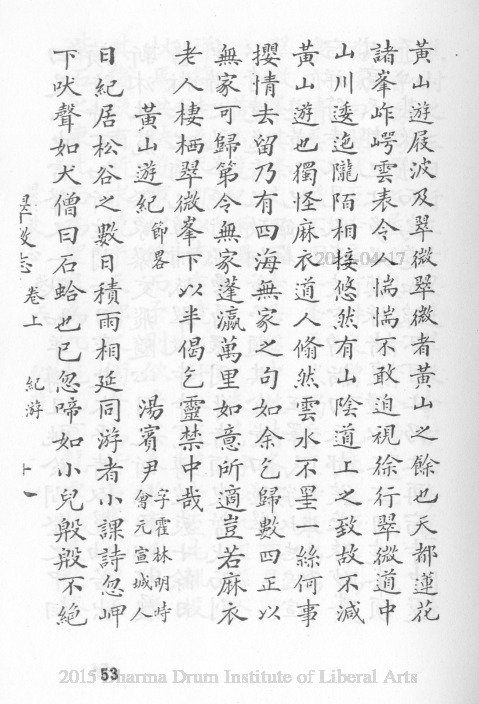 黃山遊屐波及翠微翠微者黃山之餘也天都蓮花
諸峯岞崿雲表令人惴惴不敢迫視徐行翠微道中
山川逶迤隴陌相接悠然有山陰道上之致故不減
黃山遊也獨怪麻衣道人翛然雲水不罣一絲何事
攖情去留乃有四海無家之句如余乞歸數四正以
無家可歸第令無家蓬瀛萬里如意所適豈若麻衣
老人棲栖翠微峯下以半偈乞靈禁中哉
黃山遊紀 節畧 湯賓尹 字霍林明時會元宣城人
日紀居松谷之數日積雨相延同游者小課詩忽岬
下吠聲如犬僧曰石蛤也已忽啼如小兒殷殷不絕
翠微志 卷上 紀游 十一
53
2015-04-17
2015 Dharma Drum Institute of Liberal Arts